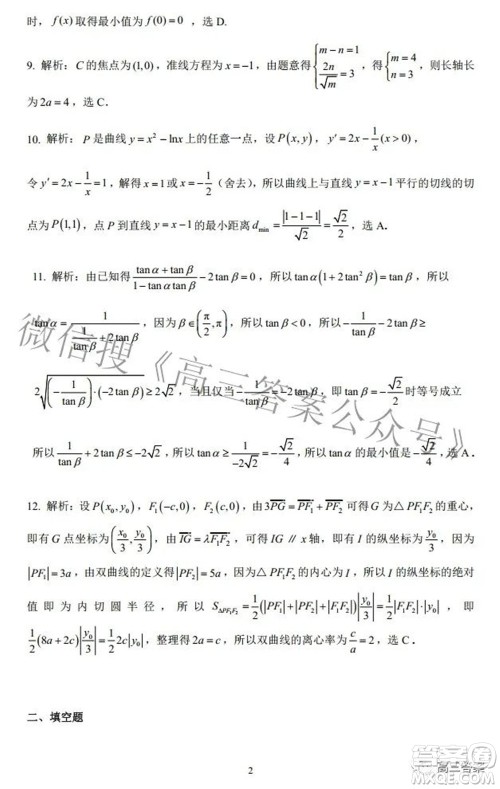 时，f(x)取得最小值为 f(0)=0 ，选 D.
9. 解析：C 的焦点为(1,0)，准线方程为 x=−1，由题意得{m−n=1, 2n/√m=3，得{m=4, n=3，则长轴长
为 2a=4，选 C．
10. 解析：P 是曲线 y=x²−lnx 上的任意一点，设 P(x,y)，y′=2x−1/x(x>0)，
令 y′=2x−1/x=1，解得 x=1 或 x=−1/2（舍去），所以曲线上与直线 y=x−1平行的切线的切
点为 P(1,1)，点 P 到直线 y=x−1 的最小距离 d_min=|1−1−1|/√2=√2/2，选 A．
11. 解析：由已知得 (tanα+tanβ)/(1−tanαtanβ)−2tanβ=0，所以 tanα(1+2tan²β)=tanβ，所以
tanα=1/(1/tanβ+2tanβ)，因为 β∈(π/2,π)，所以 tanβ<0，所以−1/tanβ−2tanβ≥
2√((−1/tanβ)·(−2tanβ))≥2√2，当且仅当−1/tanβ=−2tanβ，即 tanβ=−√2/2 时等号成立
所以 1/tanβ+2tanβ≤−2√2，所以 tanα≥1/(−2√2)=−√2/4，所以 tanα 的最小值是−√2/4，选 A．
12. 解析：设 P(x₀,y₀)，F₁(−c,0)，F₂(c,0)，由3PG=PF₁+PF₂ 可得 G 为△PF₁F₂ 的重心，
即有 G 点坐标为(x₀/3,y₀/3)，由 IG=λF₁F₂，可得 IG∥x 轴，即有 I 的纵坐标为 y₀/3，因为
|PF₁|=3a，由双曲线的定义得|PF₂|=5a，因为△PF₁F₂ 的内心为 I，所以 I 的纵坐标的绝对
值即为内切圆半径，所以 S△PF₁F₂=1/2(|PF₁|+|PF₂|+|F₁F₂|)|y₀/3|=1/2|F₁F₂||y₀|，即
1/2(8a+2c)|y₀/3|=1/2·2c|y₀|，整理得 2a=c，所以双曲线的离心率为 c/a=2，选 C．
二、填空题
2
微信搜《高三答案公众号》
高三答案